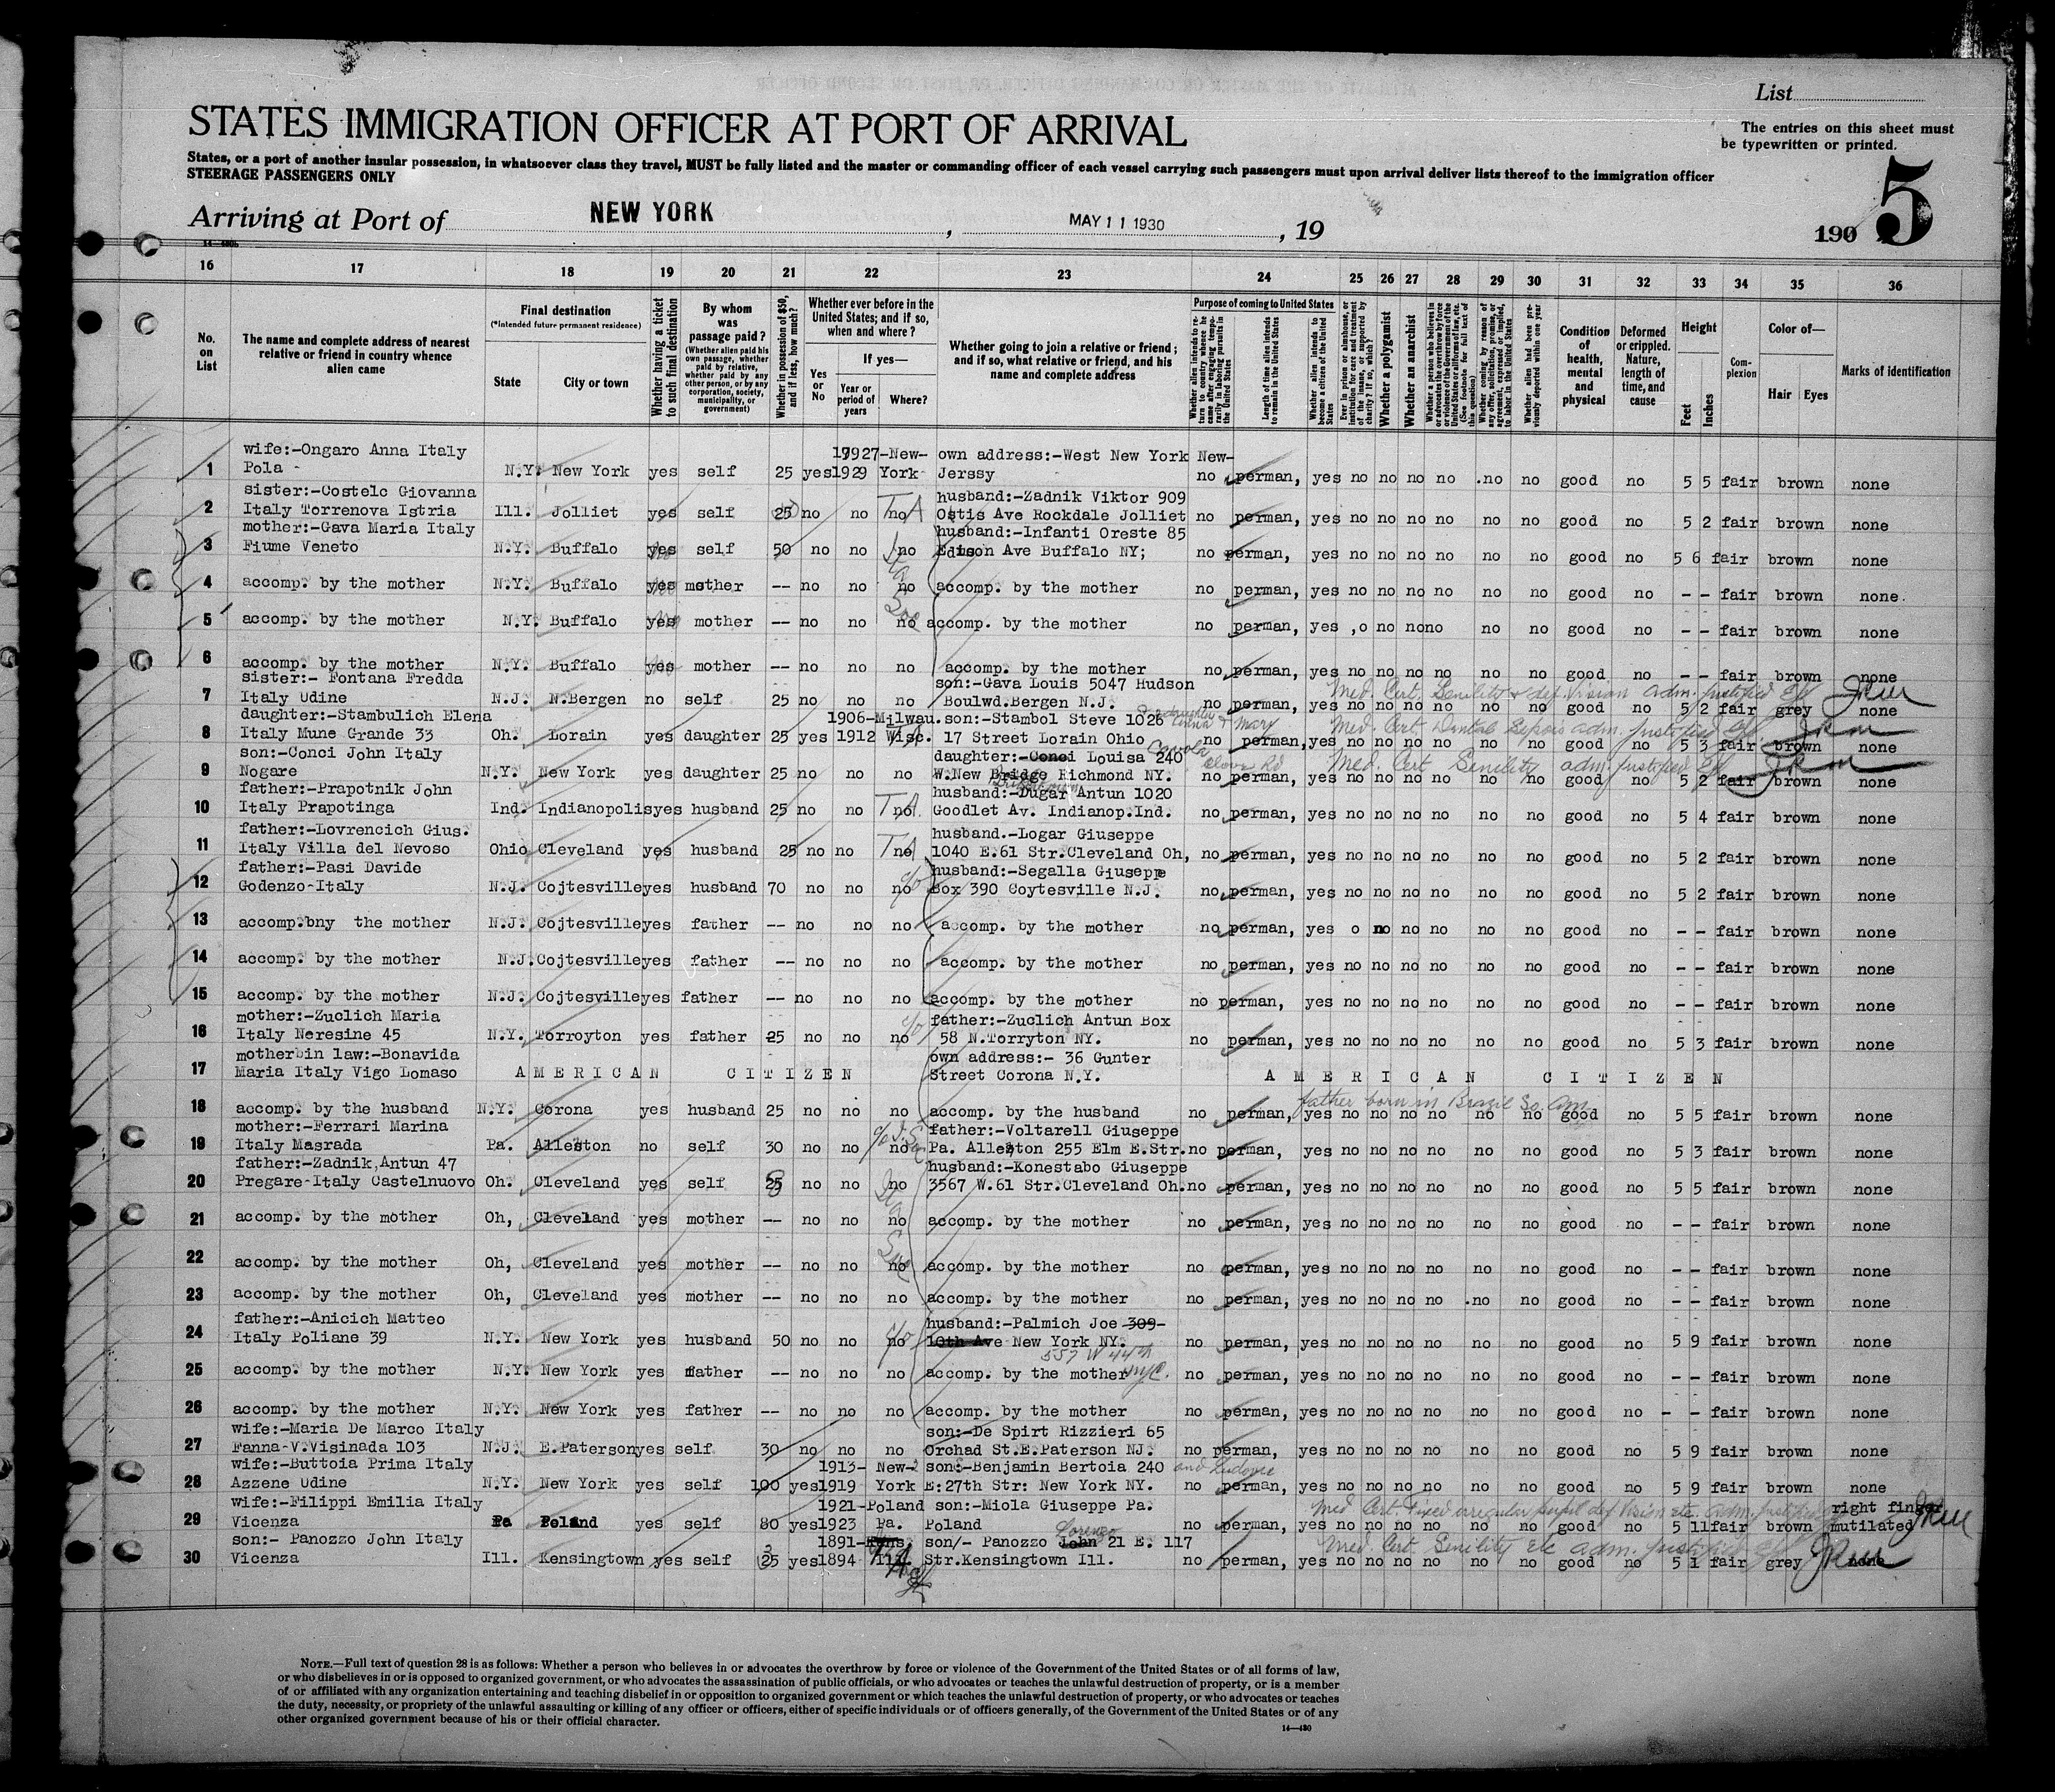 List
STATES IMMIGRATION OFFICER AT PORT OF ARRIVAL
The entries on this sheet must
be typewritten or printed.
States, or a port of another insular possession, in whatsoever class they travel, MUST be fully listed and the master or commanding officer of each vessel carrying such passengers must upon arrival deliver lists thereof to the immigration officer
STEERAGE PASSENGERS ONLY
5
Arriving at Port of NEW YORK , MAY 11 1930 , 19
190
16 17 18 19 20 21 22 23 24 25 26 27 28 29 30 31 32 33 34 35 36
No. on List
The name and complete address of nearest relative or friend in country whence alien came
Final destination
(*intended future permanent residence)
State
City or town
Whether having a ticket to such final destination
By whom was passage paid?
(Whether alien paid his own passage, whether paid by relative, whether paid by any other person, or by any corporation, society, municipality, or government)
Whether in possession of $50, and if less, how much?
Whether ever before in the United States; and if so, when and where?
Yes or No
If yes—
Year or period of years
Where?
Whether going to join a relative or friend; and if so, what relative or friend, and his name and complete address
Purpose of coming to United States
Length of time alien intends to remain in the United States
Whether alien intends to become a citizen of the United States
Whether a polygamist
Whether an anarchist
Condition of health, mental and physical
Deformed or crippled. Nature, length of time, and cause
Height
Feet Inches
Complexion
Color of—
Hair Eyes
Marks of identification
wife:-Ongaro Anna Italy 1927-New- own address:-West New York New-
1 Pola N.Y. New York yes self 25 yes 1929 York Jerssy no perman, yes no no no no no no good no 5 5 fair brown none
sister:-Costelc Giovanna husband:-Zadnik Viktor 909
2 Italy Torrenova Istria Ill. Jolliet yes self 25 no no no Ostis Ave Rockdale Jolliet no perman, yes no no no no no no good no 5 2 fair brown none
mother:-Gava Maria Italy husband:-Infanti Oreste 85
3 Fiume Veneto N.Y. Buffalo yes self 50 no no no Edison Ave Buffalo NY; no perman, yes no no no no no no good no 5 6 fair brown none
4 accomp. by the mother N.Y. Buffalo yes mother -- no no no accomp. by the mother no perman, yes no no no no no no good no - - fair brown none.
5 accomp. by the mother N.Y. Buffalo yes mother -- no no no accomp. by the mother no perman, yes ,o no no no no no good no - - fair brown none
6 accomp. by the mother N.Y. Buffalo yes mother -- no no no accomp. by the mother no perman, yes no no no no no no good no - - fair brown none
sister:- Fontana Fredda son:-Gava Louis 5047 Hudson Med. Cert. Senility & def. Vision adm. justified
7 Italy Udine N.J. N.Bergen no self 25 no no no Boulwd.Bergen N.J. no perman, yes no no no no no no good no 5 2 fair grey none
daughter:-Stambulich Elena 1906-Milwau. son:-Stambol Steve 1026 Mary Med. Cert. Dental Sepsis adm. justified
8 Italy Mune Grande 33 Oh. Lorain yes daughter 25 yes 1912 Wisc. 17 Street Lorain Ohio no perman, yes no no no no no no good no 5 3 fair brown none
son:-Conci John Italy daughter:-Conci Louisa 240 Clove Rd Med. Cert Senility adm. justified
9 Nogare N.Y. New York yes daughter 25 no no no W.New Bridge Richmond NY. no perman, yes no no no no no no good no 5 2 fair brown none
father:-Prapotnik John husband:-Dugar Antun 1020
10 Italy Prapotinga Ind. Indianopolis yes husband 25 no no no Goodlet Av. Indianop.Ind. no perman, yes no no no no no no good no 5 4 fair brown none
father:-Lovrencich Gius. husband.-Logar Giuseppe
11 Italy Villa del Nevoso Ohio Cleveland yes husband 25 no no no 1040 E.61 Str.Cleveland Oh, no perman, yes no no no no no no good no 5 2 fair brown none
father:-Pasi Davide husband:-Segalla Giuseppe
12 Godenzo-Italy N.J. Cojtesville yes husband 70 no no no Box 390 Coytesville N.J. no perman, yes no no no no no no good no 5 2 fair brown none
13 accomp.bny the mother N.J. Cojtesville yes father -- no no no accomp. by the mother no perman, yes o no no no no no good no - - fair brown none
14 accomp. by the mother N.J. Cojtesville yes father -- no no no accomp. by the mother no perman, yes no no no no no no good no - - fair brown none
15 accomp. by the mother N.J. Cojtesville yes father -- no no no accomp. by the mother no perman, yes no no no no no no good no - - fair brown none
mother:-Zuclich Maria father:-Zuclich Antun Box
16 Italy Neresine 45 N.Y. Torroyton yes father 25 no no no 58 N.Torryton NY. no perman, yes no no no no no no good no 5 3 fair brown none
mother in law:-Bonavida own address:- 36 Gunter
17 Maria Italy Vigo Lomaso AMERICAN CITIZEN Street Corona N.Y. AMERICAN CITIZEN
father born in Brazil So. Am.
18 accomp. by the husband N.Y. Corona yes husband 25 no no no accomp. by the husband no perman, yes no no no no no no good no 5 5 fair brown none
mother:-Ferrari Marina father:-Voltarell Giuseppe
19 Italy Masrada Pa. Alleston no self 30 no no no Pa. Alleston 255 Elm E.Str. no perman, yes no no no no no no good no 5 3 fair brown none
father:-Zadnik Antun 47 husband:-Konestabo Giuseppe
20 Pregare-Italy Castelnuovo Oh. Cleveland yes self 25 no no no 3567 W.61 Str.Cleveland Oh. no perman, yes no no no no no no good no 5 5 fair brown none
21 accomp. by the mother Oh, Cleveland yes mother -- no no no accomp. by the mother no perman, yes no no no no no no good no - - fair brown none
22 accomp. by the mother Oh, Cleveland yes mother -- no no no accomp. by the mother no perman, yes no no no no no no good no - - fair brown none
23 accomp. by the mother Oh, Cleveland yes mother -- no no no accomp. by the mother no perman, yes no no no no .no no good no - - fair brown none
father:-Anicich Matteo husband:-Palmich Joe 309-
24 Italy Poliane 39 N.Y. New York yes husband 50 no no no 10th Ave New York NY. no perman, yes no no no no no no good no 5 9 fair brown none
557 W 44th
25 accomp. by the mother N.Y. New York yes father -- no no no accomp. by the mother NYC. no perman, yes no no no no no no good no - - fair brown none
26 accomp. by the mother N.Y. New York yes father -- no no no accomp. by the mother no perman, yes no no no no no no good no - - fair brown none
wife:-Maria De Marco Italy son:-De Spirt Rizzieri 65
27 Fanna-V.Visinada 103 N.J. E.Paterson yes self 30 no no no Orchad St.E.Paterson NJ. no perman, yes no no no no no no good no 5 9 fair brown none
wife:-Buttoia Prima Italy 1913- New- sons:-Benjamin Bertoia 240 and Ludovic
28 Azzene Udine N.Y. New York yes self 100 yes 1919 York E:27th Str: New York NY. no perman, yes no no no no no no good no 5 9 fair brown none
wife:-Filippi Emilia Italy 1921-Poland son:-Miola Giuseppe Pa. Med Cert. Fixed irregular pupil def Vision etc. adm. justified right finger
29 Vicenza Pa Poland yes self 80 yes 1923 Pa. Poland no perman, yes no no no no no no good no 5 11 fair brown mutilated
son:- Panozzo John Italy 1891- son/- Panozzo John Lorenzo 21 E. 117 Med. Cert. Senility Etc adm. justified
30 Vicenza Ill. Kensingtown yes self 25 yes 1894 Ill. Str.Kensingtown Ill. no perman, yes no no no no no no good no 5 1 fair grey none
NOTE.—Full text of question 28 is as follows: Whether a person who believes in or advocates the overthrow by force or violence of the Government of the United States or of all forms of law,
or who disbelieves in or is opposed to organized government, or who advocates the assassination of public officials, or who advocates or teaches the unlawful destruction of property, or is a member
of or affiliated with any organization entertaining and teaching disbelief in or opposition to organized government or which teaches the unlawful destruction of property, or who advocates or teaches
the duty, necessity, or propriety of the unlawful assaulting or killing of any officer or officers, either of specific individuals or of officers generally, of the Government of the United States or of any
other organized government because of his or their official character.
14—430